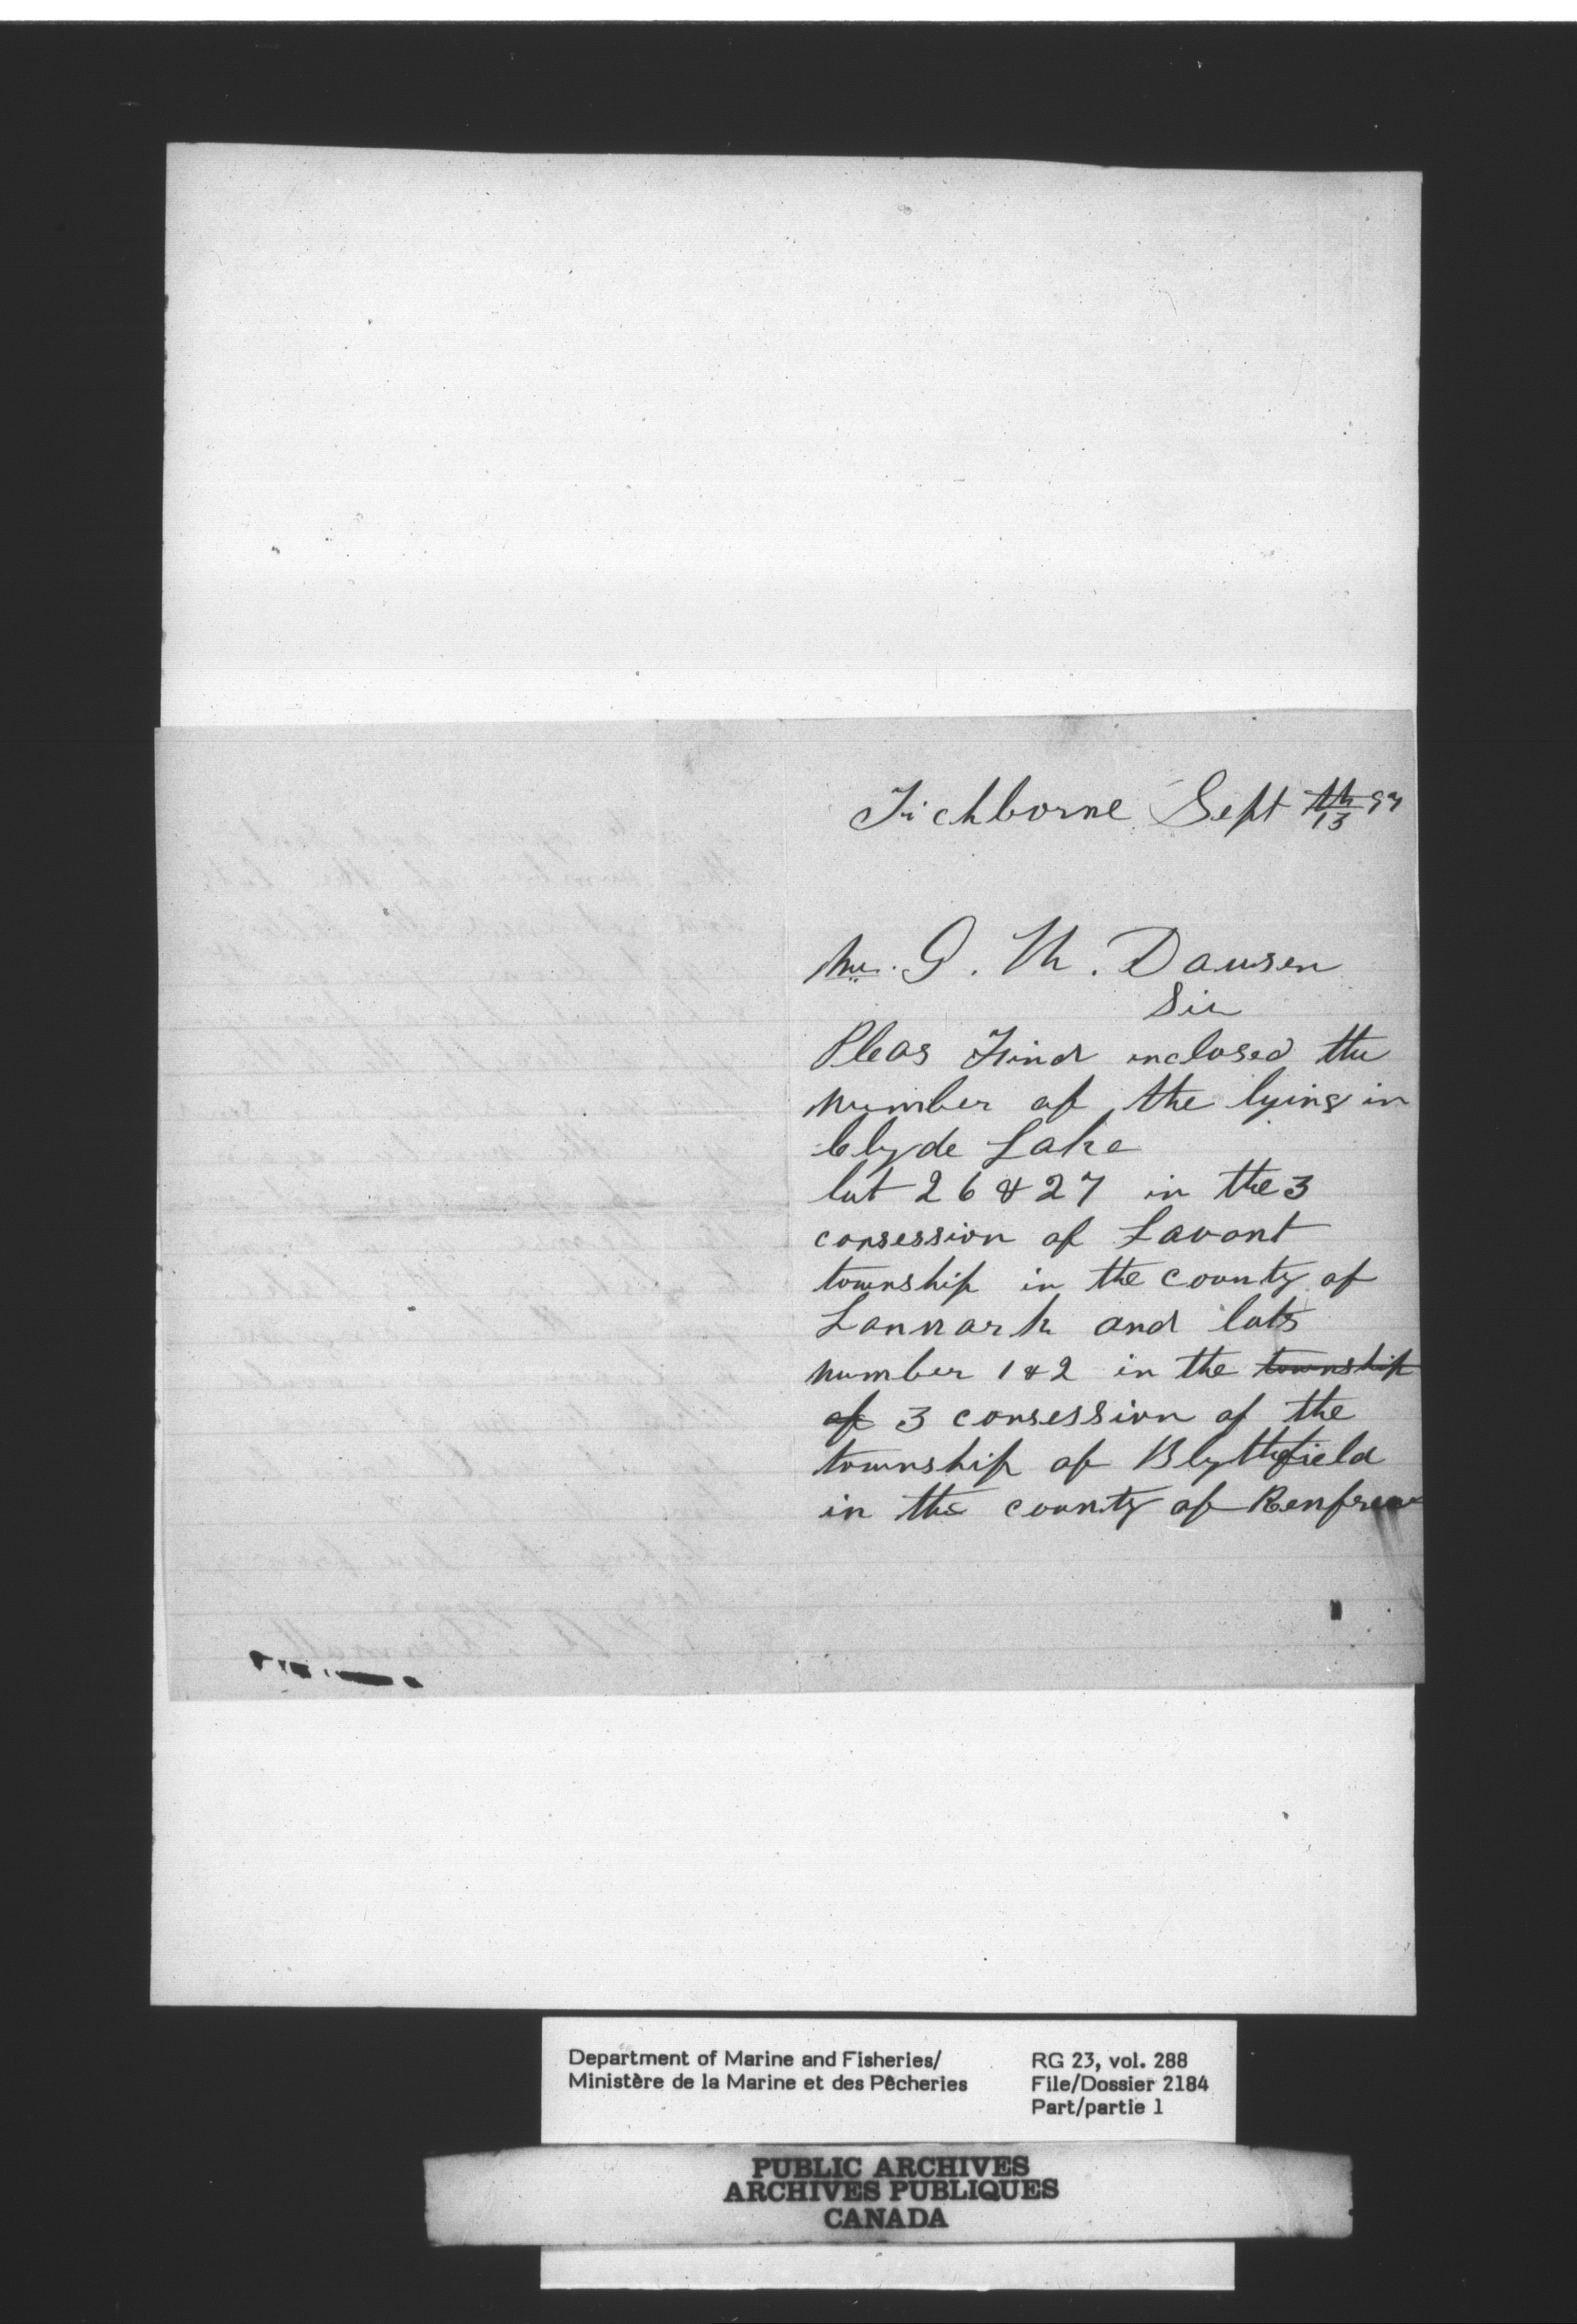 Tichborne Sept 13th 97
Mr. G. M. Dawsen
Sir
Pleas Find inclosed the
number of the lying in
Clyde Lake
lot 26 & 27 in the 3
consession of Lavant
township in the county of
Lannark and lots
number 1 & 2 in the township
of 3 consession of the
township of Blythfield
in the county of Renfrew
Department of Marine and Fisheries/
Ministère de la Marine et des Pêcheries
RG 23, vol. 288
File/Dossier 2184
Part/partie 1
PUBLIC ARCHIVES
ARCHIVES PUBLIQUES
CANADA